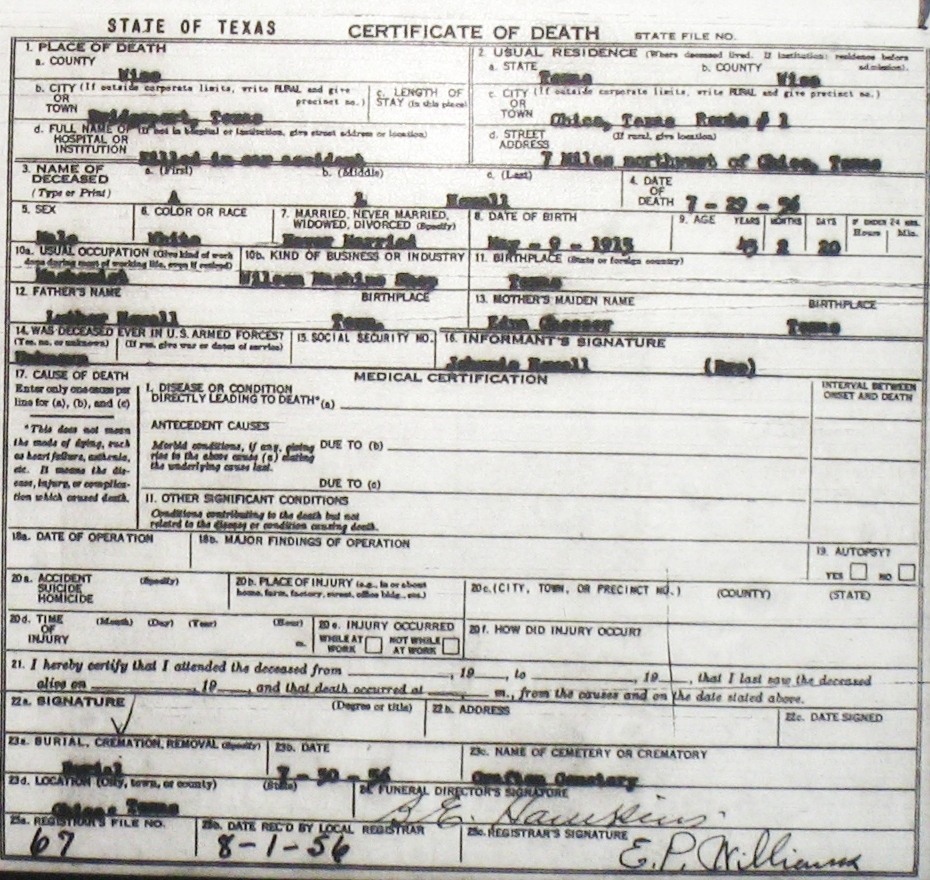 STATE OF TEXAS
CERTIFICATE OF DEATH
STATE FILE NO.
1. PLACE OF DEATH
a. COUNTY
Wise
2. USUAL RESIDENCE (Where deceased lived. If institution: residence before admission).
a. STATE
Texas
b. COUNTY
Wise
b. CITY (If outside corporate limits, write RURAL and give precinct no.)
OR
TOWN
Bridgeport, Texas
c. LENGTH OF
STAY (in this place)
c. CITY (If outside corporate limits, write RURAL and give precinct no.)
OR
TOWN
Chico, Texas Route # 1
d. FULL NAME OF (If not in hospital or institution, give street address or location)
HOSPITAL OR
INSTITUTION
Killed in car accident
d. STREET (If rural, give location)
ADDRESS
7 Miles northwest of Chico, Texas
3. NAME OF
DECEASED
(Type or Print)
a. (First)
A
b. (Middle)
L
c. (Last)
4. DATE
OF
DEATH
7 - 29 - 56
5. SEX
Male
6. COLOR OR RACE
White
7. MARRIED, NEVER MARRIED,
WIDOWED, DIVORCED (Specify)
Never Married
8. DATE OF BIRTH
May - 9 - 1913
9. AGE
YEARS
43
MONTHS
2
DAYS
20
IF UNDER 24 HRS.
Hours
Min.
10a. USUAL OCCUPATION (Give kind of work
done during most of working life, even if retired)
Machinist
10b. KIND OF BUSINESS OR INDUSTRY
Wilson Machine Shop
11. BIRTHPLACE (State or foreign country)
Texas
12. FATHER'S NAME
Luther
BIRTHPLACE
Tenn.
13. MOTHER'S MAIDEN NAME
Edna
BIRTHPLACE
Texas
14. WAS DECEASED EVER IN U.S. ARMED FORCES?
(Yes, no, or unknown)
(If yes, give war or dates of service)
Unknown
15. SOCIAL SECURITY NO.
16. INFORMANT'S SIGNATURE
Johnnie
(Bro)
17. CAUSE OF DEATH
Enter only one cause per
line for (a), (b), and (c)
*This does not mean
the mode of dying, such
as heart failure, asthenia,
etc. It means the dis-
ease, injury, or complica-
tion which caused death.
MEDICAL CERTIFICATION
I. DISEASE OR CONDITION
DIRECTLY LEADING TO DEATH*(a)
ANTECEDENT CAUSES
Morbid conditions, if any, giving
rise to the above cause (a) stating
the underlying cause last.
DUE TO (b)
DUE TO (c)
II. OTHER SIGNIFICANT CONDITIONS
Conditions contributing to the death but not
related to the disease or condition causing death.
INTERVAL BETWEEN
ONSET AND DEATH
18a. DATE OF OPERATION
18b. MAJOR FINDINGS OF OPERATION
19. AUTOPSY?
YES
NO
20a. ACCIDENT
SUICIDE
HOMICIDE
(Specify)
20b. PLACE OF INJURY (e.g., in or about
home, farm, factory, street, office bldg., etc.)
20c. (CITY, TOWN, OR PRECINCT NO.)
(COUNTY)
(STATE)
20d. TIME
OF
INJURY
(Month) (Day) (Year) (Hour)
m.
20e. INJURY OCCURRED
WHILE AT
WORK
NOT WHILE
AT WORK
20f. HOW DID INJURY OCCUR?
21. I hereby certify that I attended the deceased from , 19 , to , 19 , that I last saw the deceased
alive on , 19 , and that death occurred at m., from the causes and on the date stated above.
22a. SIGNATURE
(Degree or title)
22b. ADDRESS
22c. DATE SIGNED
23a. BURIAL, CREMATION, REMOVAL (Specify)
Burial
23b. DATE
7 - 30 - 56
23c. NAME OF CEMETERY OR CREMATORY
Crafton Cemetery
23d. LOCATION (City, town, or county)
(State)
Chico Texas
24. FUNERAL DIRECTOR'S SIGNATURE
B.E. Hawkins
25a. REGISTRAR'S FILE NO.
67
25b. DATE REC'D BY LOCAL REGISTRAR
8-1-56
25c. REGISTRAR'S SIGNATURE
E.P. Williams